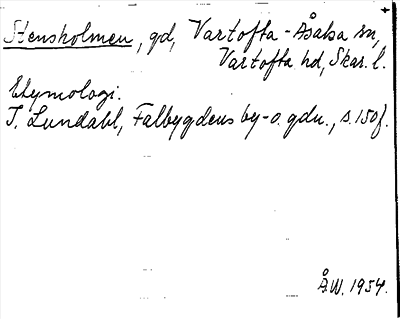 Stensholmen, gd, Vartofta-Åsaka sn,
Vartofta hd, Skar. l.
Etymologi.
I. Lundahl, Falbygdens by-o. gdn., s. 150f.
Å.W. 1954.